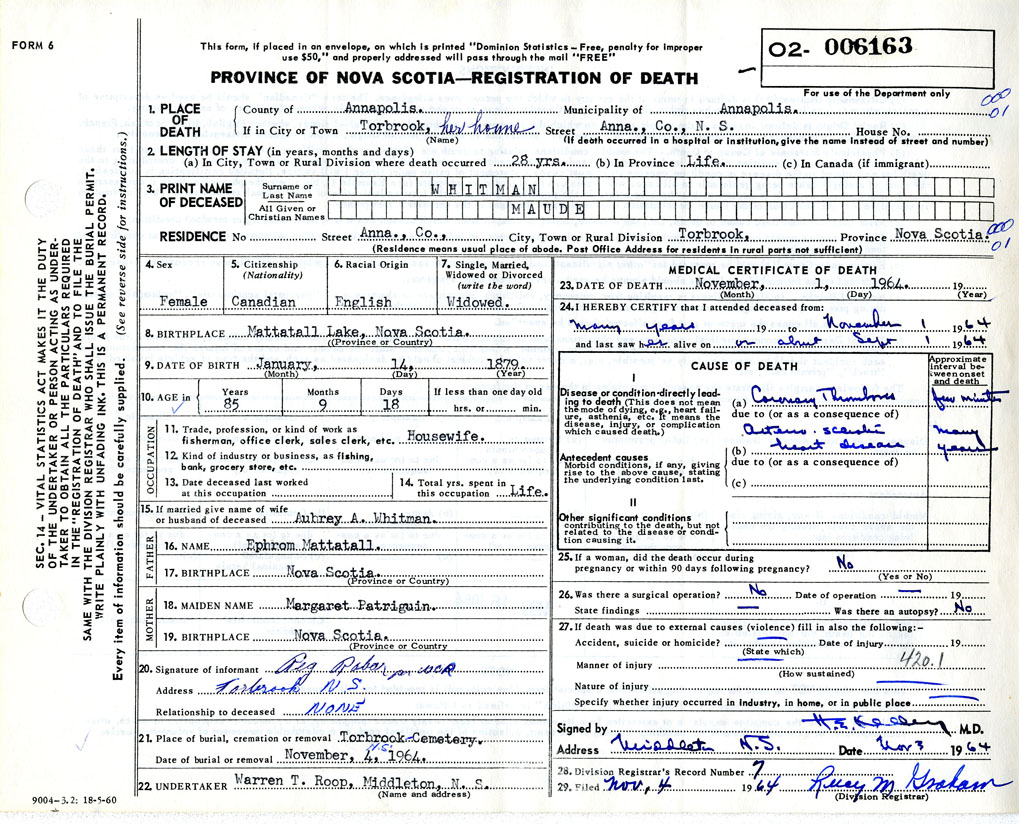 FORM 6
This form, if placed in an envelope, on which is printed "Dominion Statistics – Free, penalty for improper
use $50," and properly addressed will pass through the mail "FREE"
PROVINCE OF NOVA SCOTIA—REGISTRATION OF DEATH
02- 006163
For use of the Department only
000
01
SEC. 14 – VITAL STATISTICS ACT MAKES IT THE DUTY
OF THE UNDERTAKER OR PERSON ACTING AS UNDER-
TAKER TO OBTAIN ALL THE PARTICULARS REQUIRED
IN THE "REGISTRATION OF DEATH" AND TO FILE THE
SAME WITH THE DIVISION REGISTRAR WHO SHALL ISSUE THE BURIAL PERMIT.
WRITE PLAINLY WITH UNFADING INK. THIS IS A PERMANENT RECORD.
Every item of information should be carefully supplied. (See reverse side for instructions.)
1. PLACE OF DEATH
County of Annapolis. Municipality of Annapolis.
If in City or Town Torbrook, her home Street Anna., Co., N. S. House No.
(Name) (If death occurred in a hospital or institution, give the name instead of street and number)
2. LENGTH OF STAY (in years, months and days)
(a) In City, Town or Rural Division where death occurred 28 yrs. (b) In Province Life. (c) In Canada (if immigrant)
3. PRINT NAME OF DECEASED
Surname or Last Name WHITMAN
All Given or Christian Names MAUDE
RESIDENCE No Street Anna., Co., City, Town or Rural Division Torbrook, Province Nova Scotia.
000
01
(Residence means usual place of abode. Post Office Address for residents in rural parts not sufficient)
4. Sex
Female
5. Citizenship
(Nationality)
Canadian
6. Racial Origin
English
7. Single, Married,
Widowed or Divorced
(write the word)
Widowed.
8. BIRTHPLACE Mattatall Lake, Nova Scotia.
(Province or Country)
9. DATE OF BIRTH January, 14, 1879.
(Month) (Day) (Year)
10. AGE in
Years Months Days If less than one day old
85 9 18 hrs. or min.
OCCUPATION
11. Trade, profession, or kind of work as
fisherman, office clerk, sales clerk, etc. Housewife.
12. Kind of industry or business, as fishing,
bank, grocery store, etc.
13. Date deceased last worked
at this occupation
14. Total yrs. spent in
this occupation Life.
15. If married give name of wife
or husband of deceased Aubrey A. Whitman.
FATHER
16. NAME Ephrom Mattatall.
17. BIRTHPLACE Nova Scotia.
(Province or Country)
MOTHER
18. MAIDEN NAME Margaret Patriguin.
19. BIRTHPLACE Nova Scotia.
(Province or Country
20. Signature of informant Reg
Address Torbrook N.S.
Relationship to deceased NONE
21. Place of burial, cremation or removal Torbrook Cemetery.
N.S.
Date of burial or removal November, 4, 1964.
22. UNDERTAKER Warren T. Roop, Middleton, N. S.
(Name and address)
9004–3.2: 18-5-60
MEDICAL CERTIFICATE OF DEATH
23. DATE OF DEATH November, 1, 1964. 19
(Month) (Day) (Year)
24. I HEREBY CERTIFY that I attended deceased from:
many years 19 to November 1 1964
and last saw her alive on or about Sept 1 1964
CAUSE OF DEATH
Approximate
interval be-
tween onset
and death
I
Disease or condition directly lead-
ing to death (This does not mean
the mode of dying, e.g., heart fail-
ure, asthenia, etc. It means the
disease, injury, or complication
which caused death.)
(a) Coronary Thrombosis few minutes
due to (or as a consequence of)
Antecedent causes
Morbid conditions, if any, giving
rise to the above cause, stating
the underlying condition last.
(b) heart disease many years
due to (or as a consequence of)
(c)
II
Other significant conditions
contributing to the death, but not
related to the disease or condi-
tion causing it.
25. If a woman, did the death occur during
pregnancy or within 90 days following pregnancy? No
(Yes or No)
26. Was there a surgical operation? No Date of operation — 19
State findings — Was there an autopsy? No
27. If death was due to external causes (violence) fill in also the following:–
Accident, suicide or homicide? Date of injury 19
(State which)
Manner of injury 420.1
(How sustained)
Nature of injury
Specify whether injury occurred in industry, in home, or in public place
Signed by H.E. Kelley M.D.
Address Middleton N.S. Date Nov 3 1964
28. Division Registrar's Record Number 7
29. Filed Nov. 4 1964 M Graham
(Division Registrar)